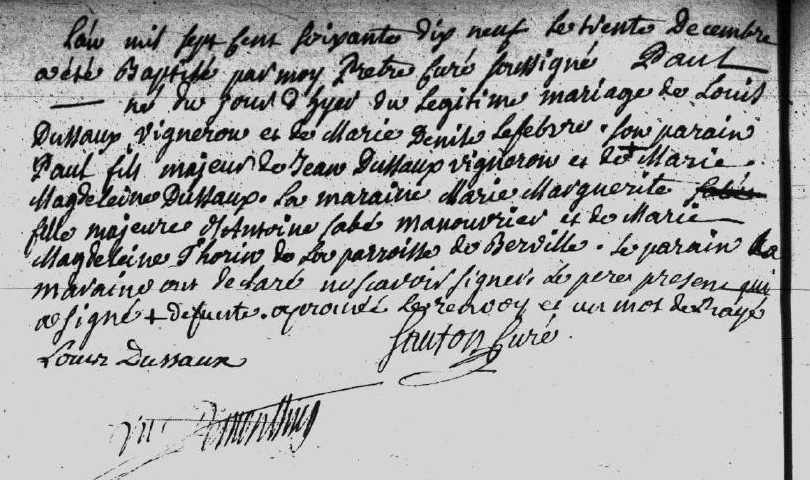 L'an mil sept cent soixante dix neuf le trente Decembre
a été Baptisé par moy Pretre Curé soussigné Paul
né du jour d'hyer du legitime mariage de Louis
Dussaux vigneron et de Marie Denise Lefebvre. son parain
Paul fils majeur de Jean Dussaux vigneron et de + Marie
Magdeleine Dussaux. La maraine Marie Marguerite Sabé
fille majeure d'Antoine Sabé manouvrier et de Marie
Magdeleine Thorin de la parroisse de Berville. le parain la
maraine ont declaré ne scavoir signer. le pere present qui
a signé + defunte. aprouvé le renvoy et un mot de rayé
Louis Dussaux
Santon Curé